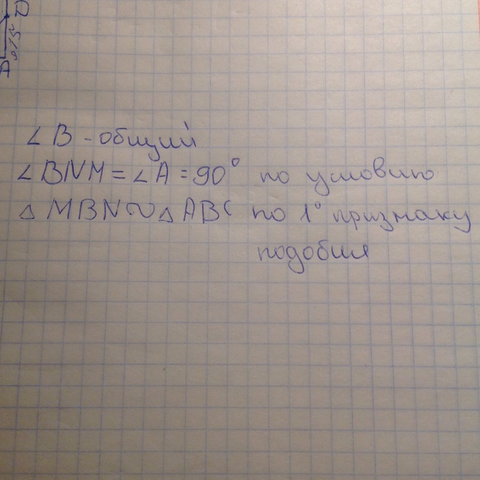 ∠B - общий
∠BNM = ∠A = 90° по условию
△ MBN ∾ △ ABC по 1° признаку
подобия